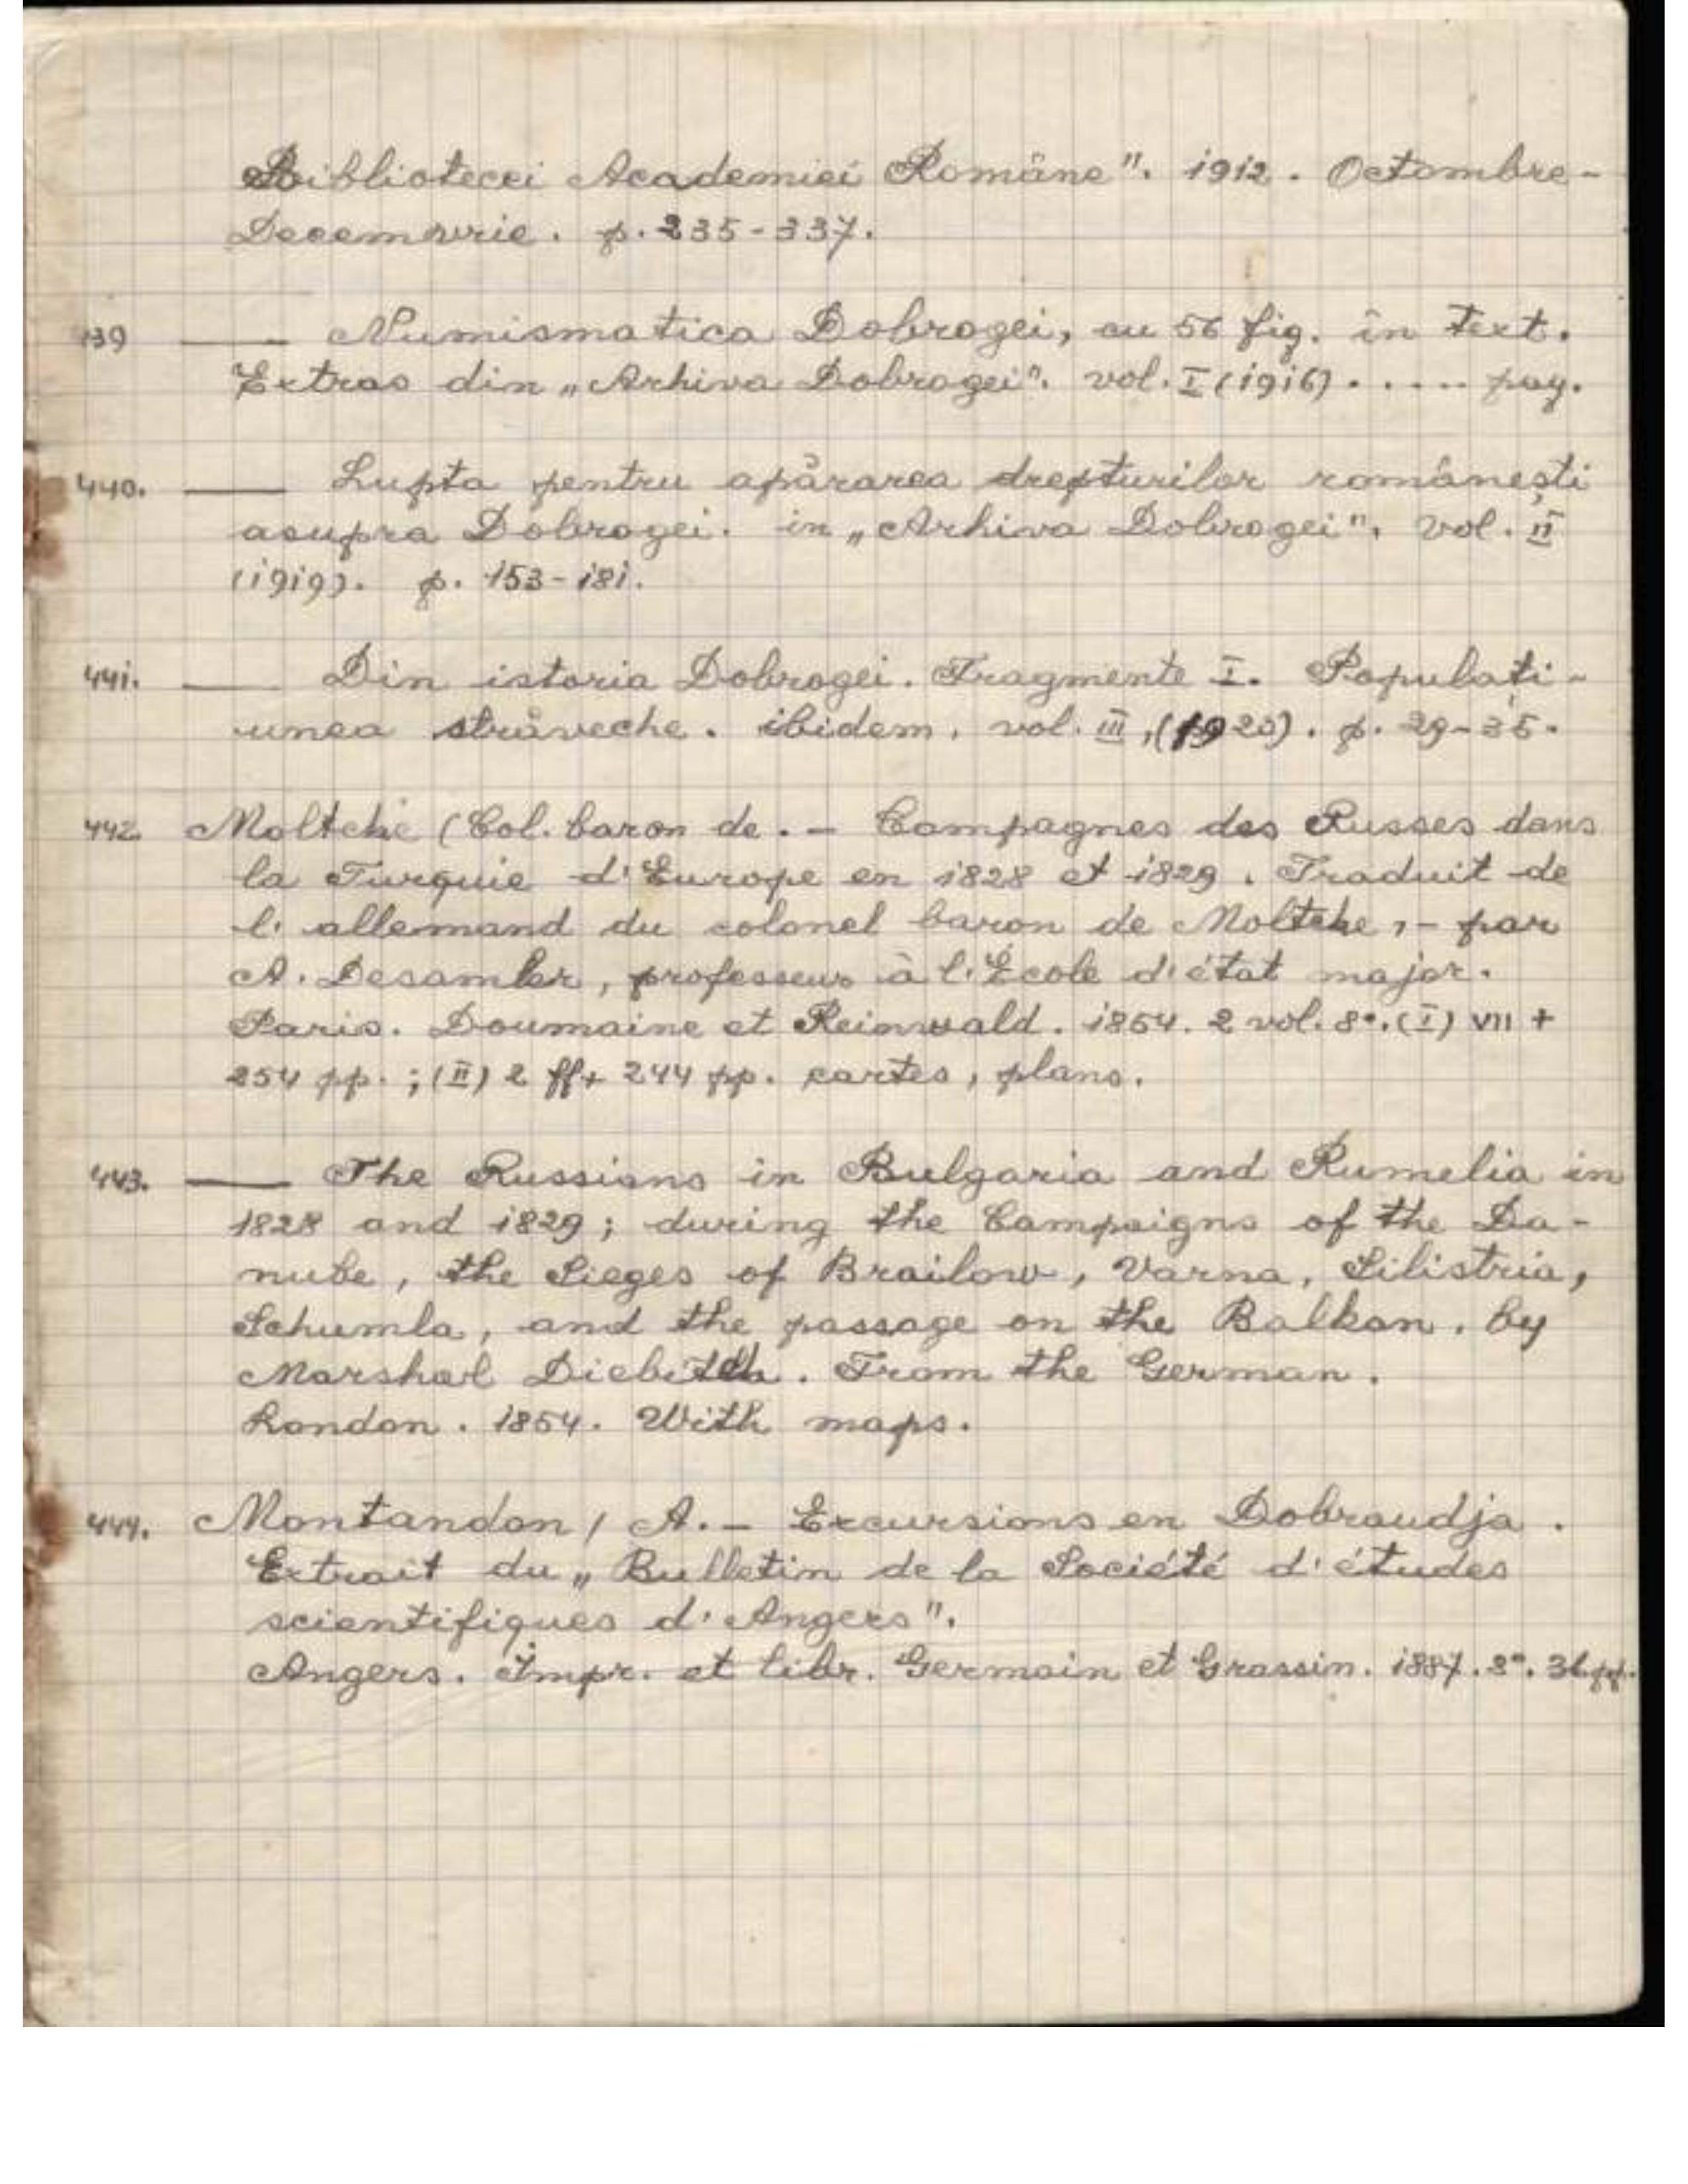 Bibliotecei Academiei Române". 1912. Octombre-
Decemvrie. p. 235-337.
439 —— Numismatica Dobrogei, cu 56 fig. în text.
Extras din „Arhiva Dobrogei". vol. I (1916) . .... pag.
440. —— Lupta pentru apărarea drepturilor românești
asupra Dobrogei. in „Arhiva Dobrogei". Vol. II
(1919). p. 153-181.
441. —— Din istoria Dobrogei. Fragmente I. Populați-
unea străveche. ibidem, vol. III, (1920). p. 29-35.
442. Moltcke (Col. baron de. - Campagnes des Russes dans
la Turquie d'Europe en 1828 et 1829. Traduit de
l'allemand du colonel baron de Moltcke, - par
A. Desambler, professeur à l'École d'état major.
Paris. Doumaine et Reinwald. 1854. 2 vol. 8°. (I) VII +
254 pp. ; (II) 2 ff + 244 pp. cartes, plans.
443. —— The Russians in Bulgaria and Rumelia in
1828 and 1829; during the Campaigns of the Da-
nube, the Sieges of Brailow, Varna, Silistria,
Schumla, and the passage on the Balkan. by
Marshal Diebitch. From the German.
London. 1854. With maps.
444. Montandon / A. - Excursions en Dobroudja.
Extrait du „Bulletin de la Société d'études
scientifiques d'Angers".
Angers. Impr. et libr. Germain et Grassin. 1887. 8°. 36 pp.